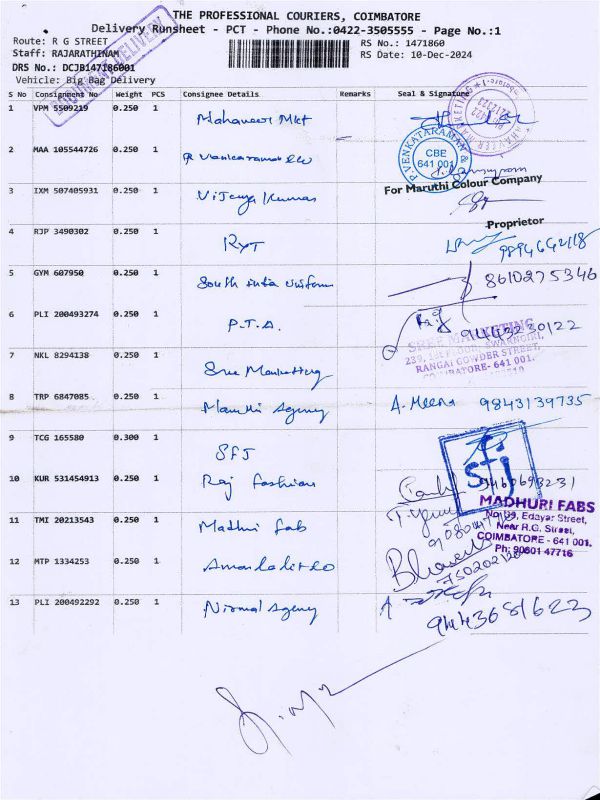 THE PROFESSIONAL COURIERS, COIMBATORE
Delivery Runsheet - PCT - Phone No.:0422-3505555 - Page No.:1
Route: R G STREET
RS No.: 1471860
Staff: RAJARATHINAM
RS Date: 10-Dec-2024
DRS No.: DCJB147186001
Vehicle: Big Bag Delivery
S No Consignment No Weight PCS Consignee Details Remarks Seal & Signature
1 VPM 5509219 0.250 1 Mahaveer Mkt
2 MAA 105544726 0.250 1
P.VENKATARAMAN & CO
CBE
641 001
3 IXM 507405931 0.250 1 Vijaya Kumar
For Maruthi Colour Company
Proprietor
4 RJP 3490302 0.250 1 RYT
9894642118
5 GYM 607950 0.250 1 South india Uniform 8610275346
6 PLI 200493274 0.250 1 P.T.A.
SREE MARKETING
RANGAI GOWDER STREET,
COIMBATORE- 641 001.
7 NKL 8294138 0.250 1 Sree Marketing
8 TRP 6847085 0.250 1 Maruthi Agency A. Meena 9843139735
9 TCG 165580 0.300 1 SFJ
sfj
10 KUR 531454913 0.250 1 Raj fashion
MADHURI FABS
No. 99, Edayar Street,
Near R.G. Street,
COIMBATORE - 641 001.
Ph: 90801 47716
11 TMI 20213543 0.250 1 Madhuri fab
12 MTP 1334253 0.250 1
13 PLI 200492292 0.250 1 Nirmal Agency
9443681623